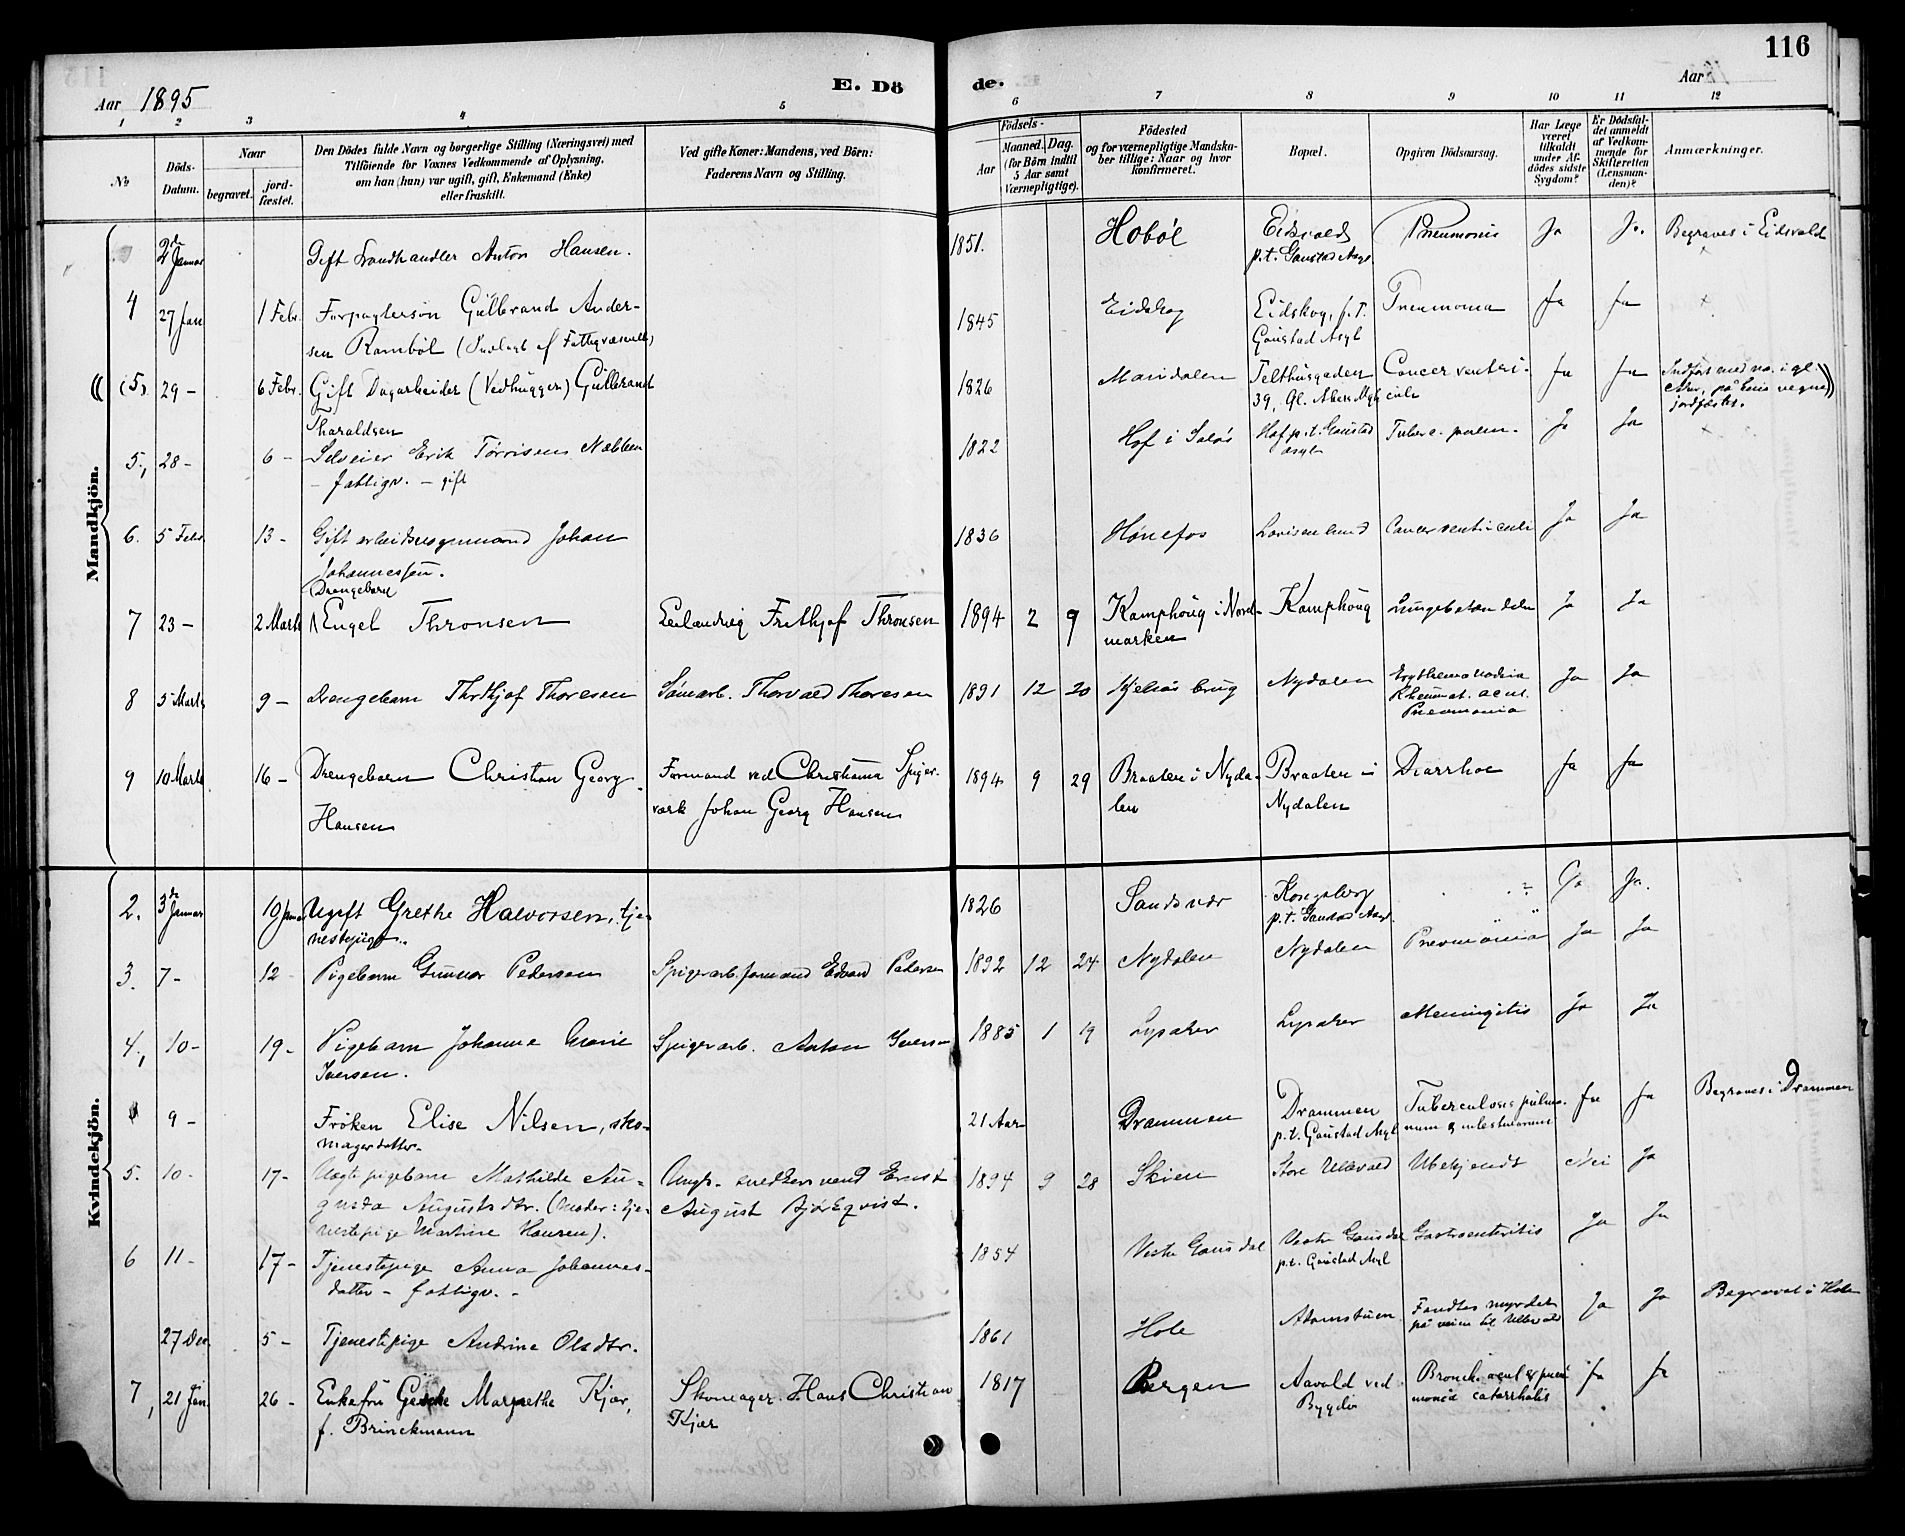 116
Aar 1895
E. Dö
de.
Aar
1 2 3 4 5 6 7 8 9 10 11 12
No
Döds-Datum.
Naar
begravet.
jord-fæstet.
Den Dödes fulde Navn og borgerlige Stilling (Næringsvei) med
Tilföiende for Voxnes Vedkommende af Oplysning,
om han (hun) var ugift, gift, Enkemand (Enke)
eller fraskilt.
Ved gifte Koner: Mandens, ved Börn:
Faderens Navn og Stilling.
Födsels-
Aar
Maaned. Dag.
(for Börn indtil
5 Aar samt
Værnepligtige).
Födested
og for værnepligtige Mandska-
ber tillige: Naar og hvor
konfirmeret.
Bopæl.
Opgiven Dödsaarsag.
Har Læge
været
tilkaldt
under Af-
dödes sidste
Sygdom?
Er Dödsfal-
det anmeldt
af Vedkom-
mende for
Skifteretten
(Lensman-
den)?
Anmærkninger.
Mandkjön.
2d Januar Gift Landhandler Anton Hansen. 1851. Hoböl Eidsvold Pneumoni Ja Ja. Begraves i Eidsvold
p.t. Gaustad Asyl
4 27 Jan 1 Febr. Forpaglersön Gulbrand Ander- 1845 Eidskog Eidskog, p.T. Pneumonia Ja Ja
sen Ramböl (Indlagt af Fattigvæsenet) Gaustad Asyl
(5). 29 - 6 Febr. Gift Dagarbeider (Vedhugger) Gulbrand 1826 Maridalen Telthusgaden Cancer ventri- Ja Ja Indfört med no. i gl.
Tharaldsen 39, Gl. Akers culi Aker, på hvis vegne
jordfæstet.
5., 28 - 6 - Selveier Erik Törrisen Næbben 1822 Hof i Solör Hof p.t. Gaustad Tuberc. pulm. Ja Ja
- fattigv. - gift asyl
6. 5 Febr. 13 - Gift arbeidsvognmand Johan 1836 Hönefos Lovisenlund Cancer ventriculi Ja Ja
Johannessen.
Drengebarn
7 23 - 2 Marts Engel Thronsen Leilænding Frithjof Thronsen 1894 2 9 Kamphoug i Nord- Kamphoug Lungebetændelse Ja Ja
marken
8 5 Marts 9 - Drengebarn Thrthjof Thoresen Sömarb. Thorvald Thoresen 1891 12 20 Kjelsås brug Nydalen Erythema nodosa Ja Ja
Rheumat. acut.
Pneumonia
9 10 Marts 16 - Drengebarn Christian Georg Formand ved Christiania Spiger- 1894 9 29 Braaten i Nyda- Braaten i Diarrhoe Ja Ja
Hansen værk Johan Georg Hansen len Nydalen
Kvindekjön.
2. 3d Januar 10 Januar Ugift Grethe Halvorsen, tje- 1826 Sandsvær Kongsberg ? Ja Ja.
nestepige. p.t. Gaustad Asyl
3. 7 - 12 Pigebarn Gunvor Pedersen Spigerarb. formand Edvard Pedersen 1892 12 24 Nydalen Nydalen Pneumonia Ja Ja
4., 10 - 19 - Pigebarn Johanne Marie Spigerarb. Anton Iversen 1885 1 19 Lysaker Lysaker Meningitis Ja Ja
Iversen.
9 - Fröken Elise Nilsen, sko- 21 Aar Drammen Drammen Tuberculosis pulmo- Ja Ja Begraves i Drammen
magerdatter. p.t. Gaustad Asyl num & intestinorum
5. 10 - 17 - Uægte pigebarn Mathilde Au- Ungk. snedkersvend Ernst 1894 9 28 Skien Store Ullevold Ubekjendt Nei Ja
gusta Augustsdtr. (Moder: tje- August Björkqvist.
nestepige Martine Hansen).
6 11 - 17 - Tjenestepige Anna Johannes- 1854 Vestre Gausdal Vestre Gausdal Gastroenteritis Ja Ja
datter - fattigv. - p.t. Gaustad Asyl
27 Dec. 5 - Tjenestepige Andrine Olsdtr. 1861 Hole Adamstuen Fandtes myrdet Ja Ja Begravet i Hole
på veien til Ullevold
7, 21 Jan. 26 - Enkefru Margrethe Kjær, Skomager Hans Christian 1817 Bergen Aavold ved Bronch. acut & pneu- Ja Ja
f. Brinckmann Kjær Bygdö monia catarrhalis